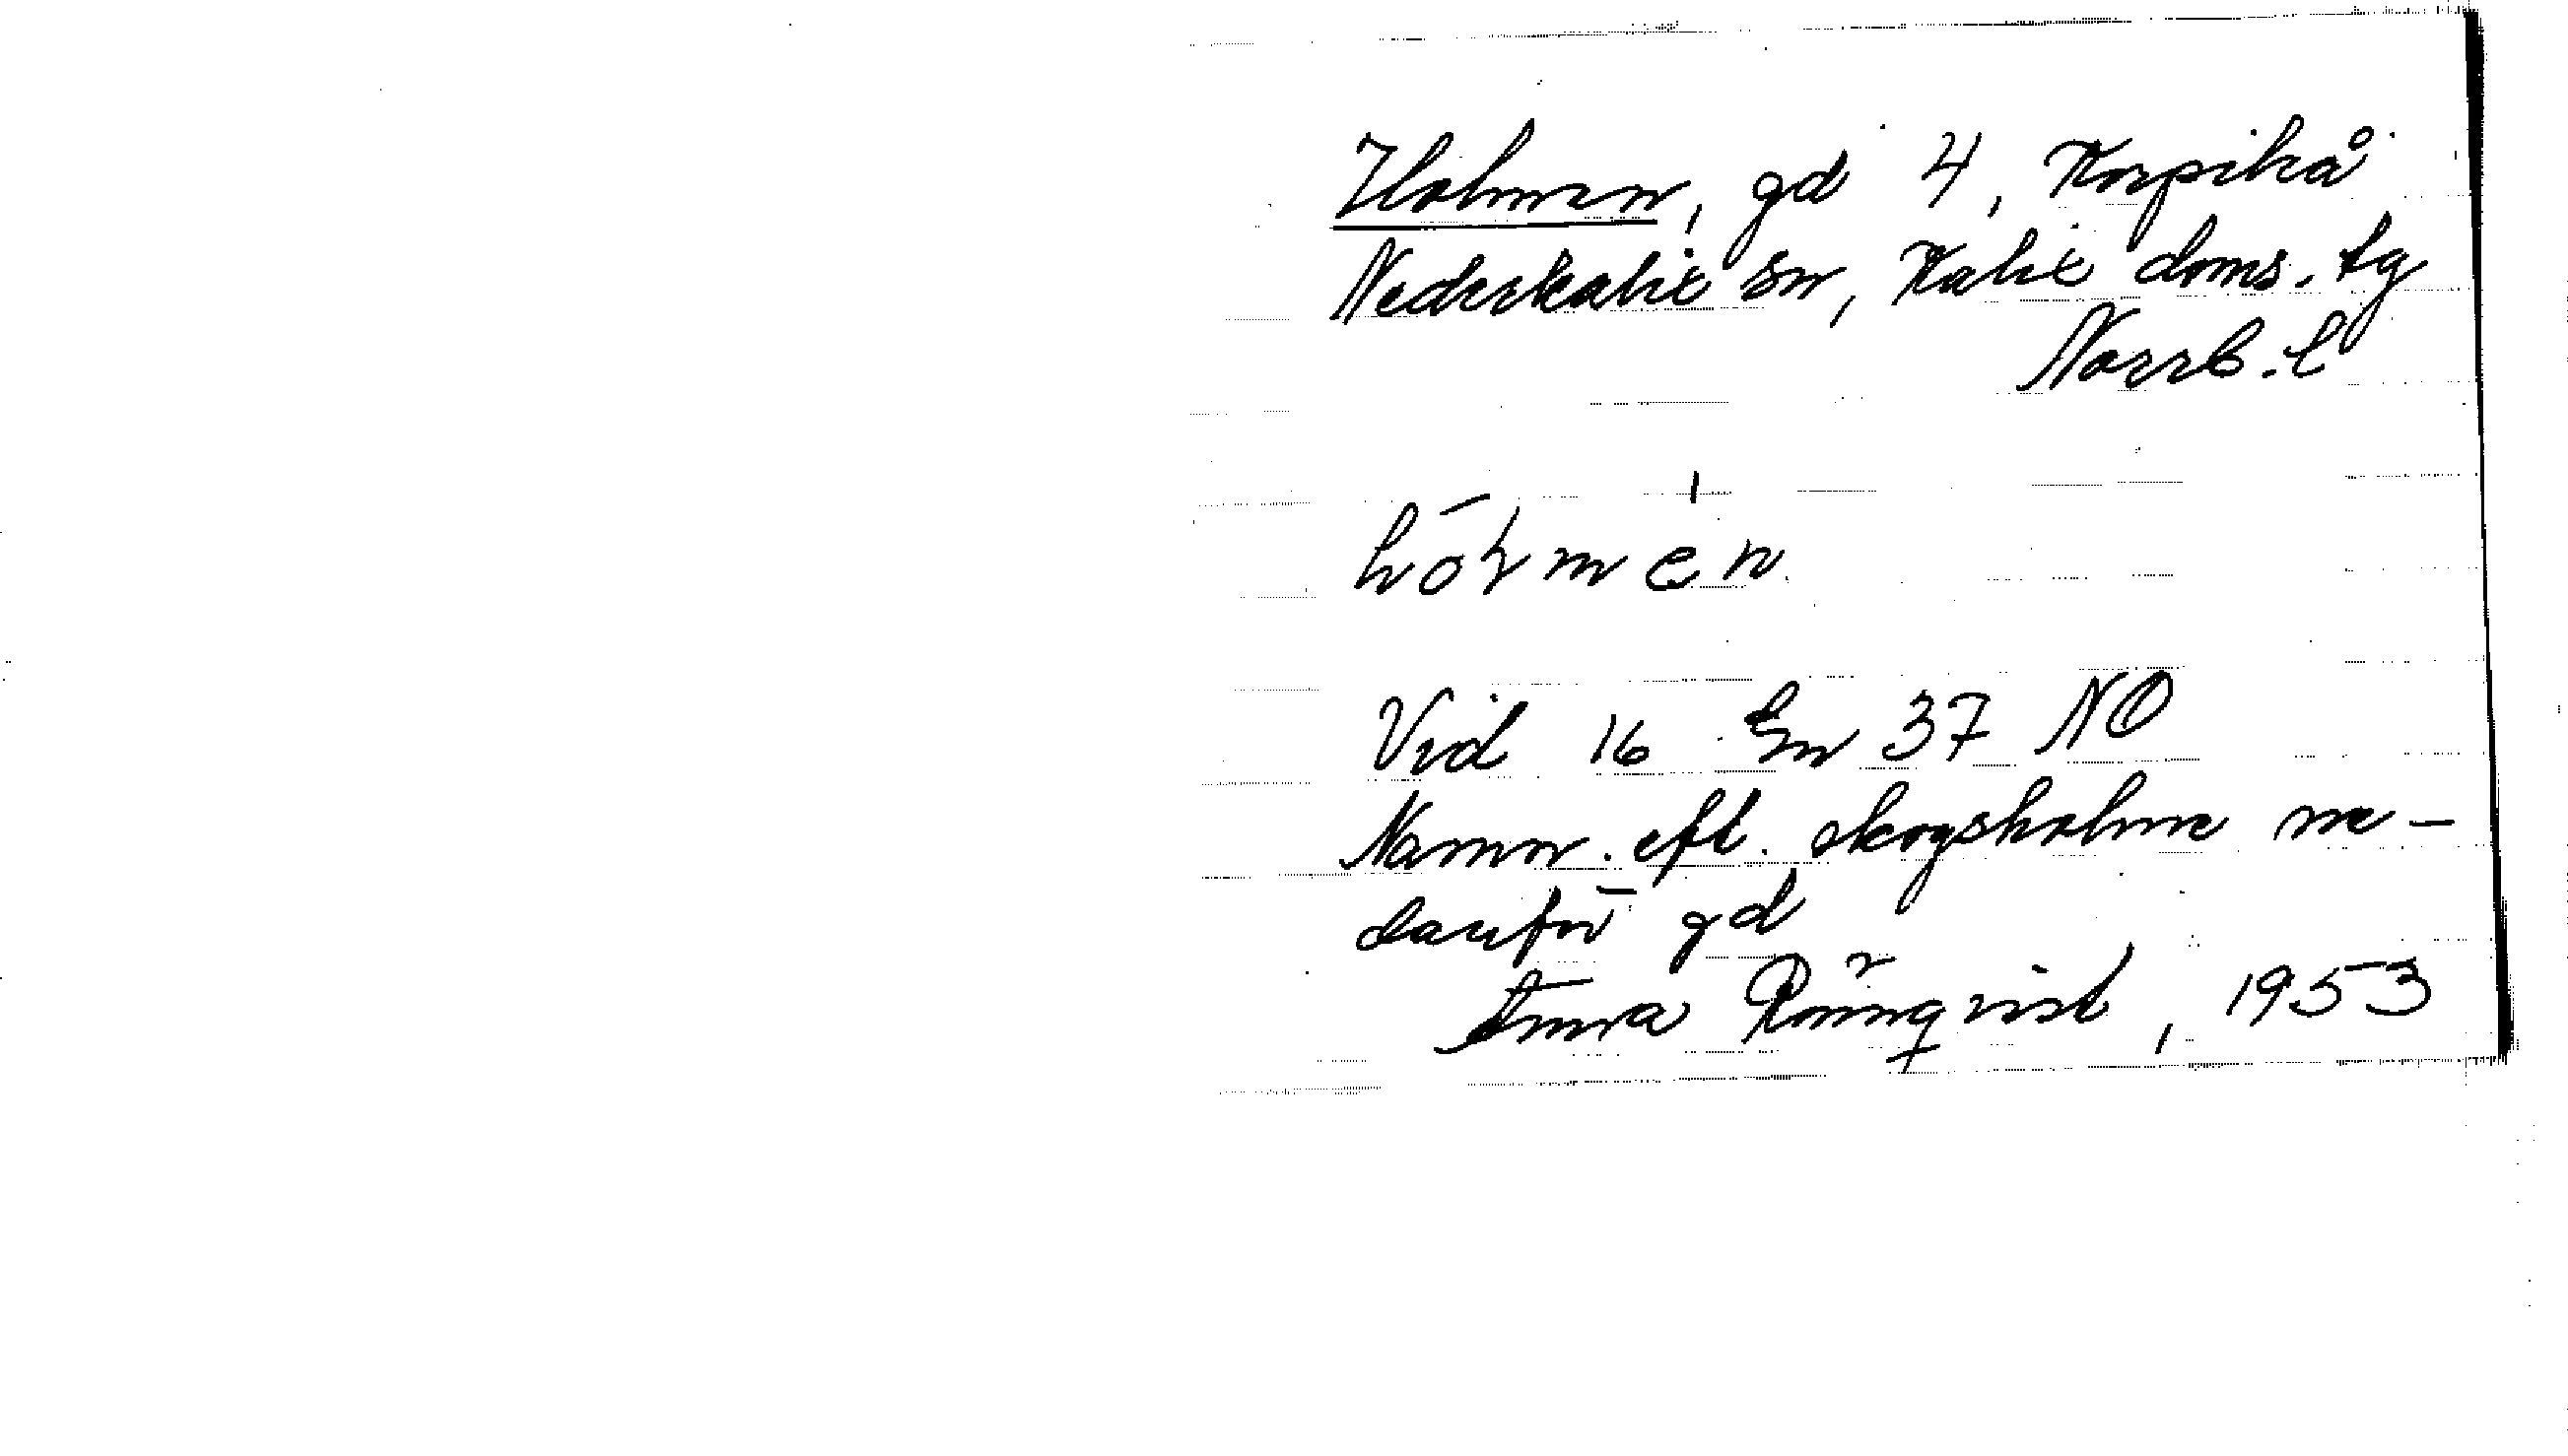 Holmen, gd 4, Korpikå
Nederkalix sn, Kalix doms. tg
Norrb. l
Vid 16 Em 37 NO
Namn. eft. skogsholme ne-
danför gd
Anna Rönnqvist, 1953